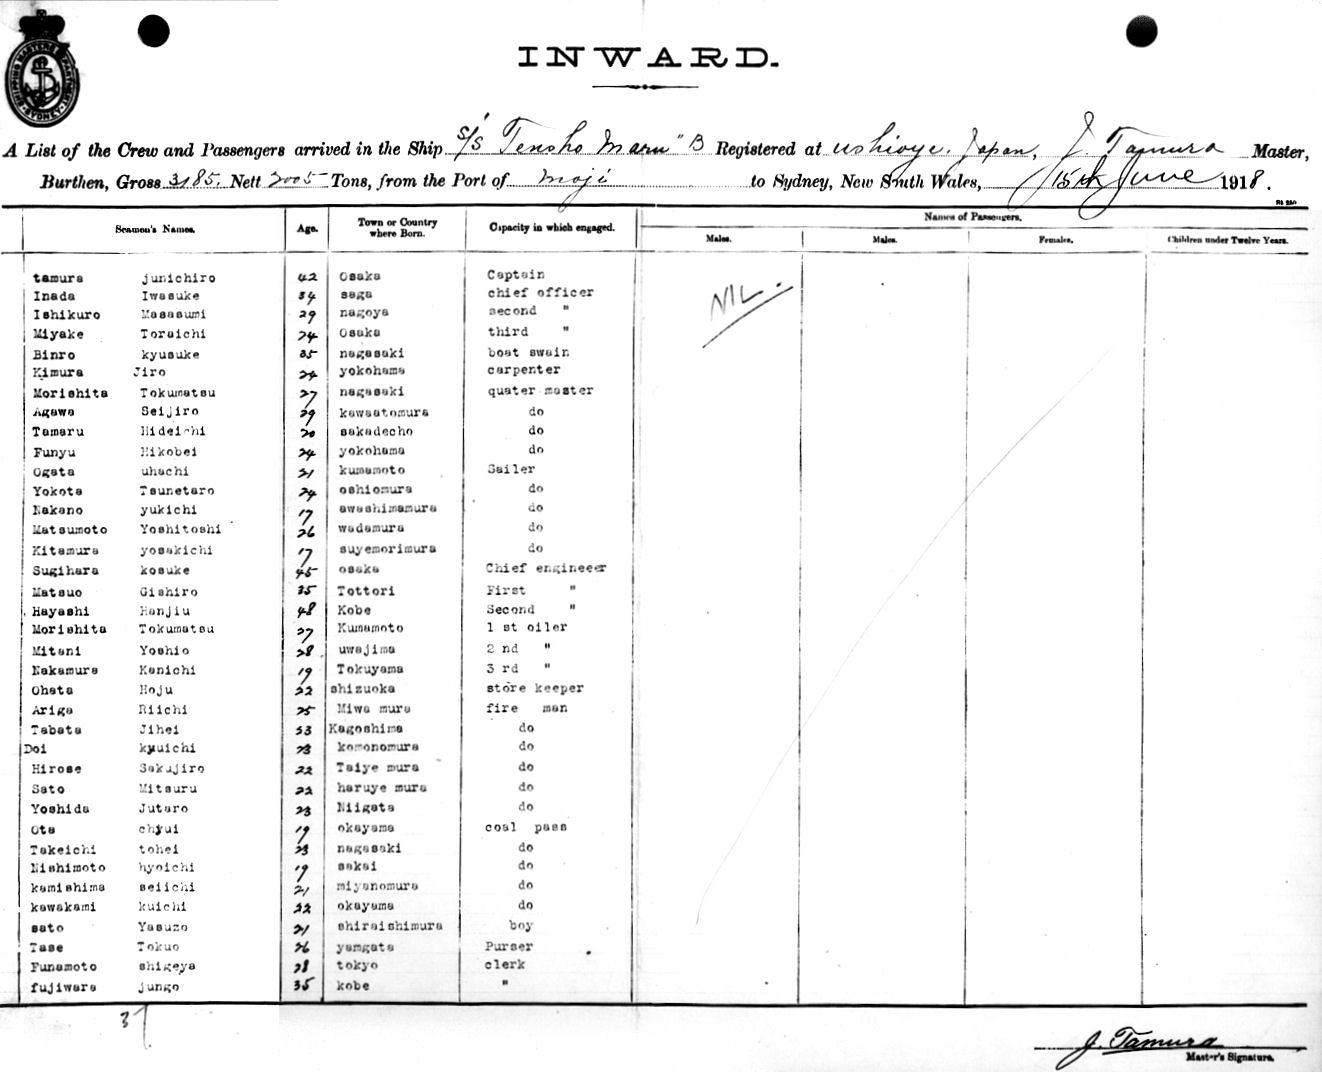 SHIPPING MASTER'S DEPARTMENT. SYDNEY.
INWARD.
A List of the Crew and Passengers arrived in the Ship S/S "Tensho Maru" B Registered at Japan, J. Tamura Master,
Burthen, Gross 3185. Nett 2005 Tons, from the Port of Moji to Sydney, New South Wales, 15th June 1918.
Seamen's Names. Age. Town or Country where Born. Capacity in which engaged. Names of Passengers.
Males. Males. Females. Children under Twelve Years.
tamura junichiro 42 Osaka Captain
NIL.
Inada Iwasuke 34 saga chief officer
Ishikuro Masasumi 29 nagoya second "
Miyake Toraichi 24 Osaka third "
Binro kyusuke 35 nagasaki boat swain
Kimura Jiro 24 yokohama carpenter
Morishita Tokumatsu 27 nagasaki quater master
Agawa Seijiro 29 kawaatomura do
Tamaru Hideichi 20 sakadecho do
Funyu Hikobei 24 yokohama do
Ogata uhachi 21 kumamoto Sailer
Yokota Tsunetaro 24 oshiomura do
Nakano yukichi 17 awashimamura do
Matsumoto Yoshitoshi 26 wadamura do
Kitamura yosakichi 17 suyemorimura do
Sugihara kosuke 45 osaka Chief engineeer
Matsuo Gishiro 35 Tottori First "
Hayashi Hanjiu 48 Kobe Second "
Morishita Tokumatsu 27 Kumamoto 1 st oiler
Mitani Yoshio 28 uwajima 2 nd "
Nakamura Kenichi 19 Tokuyama 3 rd "
Ohata Hoju 22 shizuoka store keeper
Ariga Riichi 25 Miwa mura fire man
Tabata Jihei 33 Kagoshima do
Doi kyuichi 23 komonomura do
Hirose Sakujiro 22 Taiye mura do
Sato Mitsuru 22 haruye mura do
Yoshida Jutaro 23 Niigata do
Ota chyui 19 okayama coal pass
Takeichi tohei 23 nagasaki do
Nishimoto hyoichi 19 sakai do
kamishima seiichi 21 miyanomura do
kawakami kuichi 22 okayama do
sato Yasuzo 21 shiraishimura boy
Tase Tokuo 26 yamgata Purser
Funamoto shigeya 28 tokyo clerk
fujiwara jungo 35 kobe "
37
J. Tamura
Master's Signature.